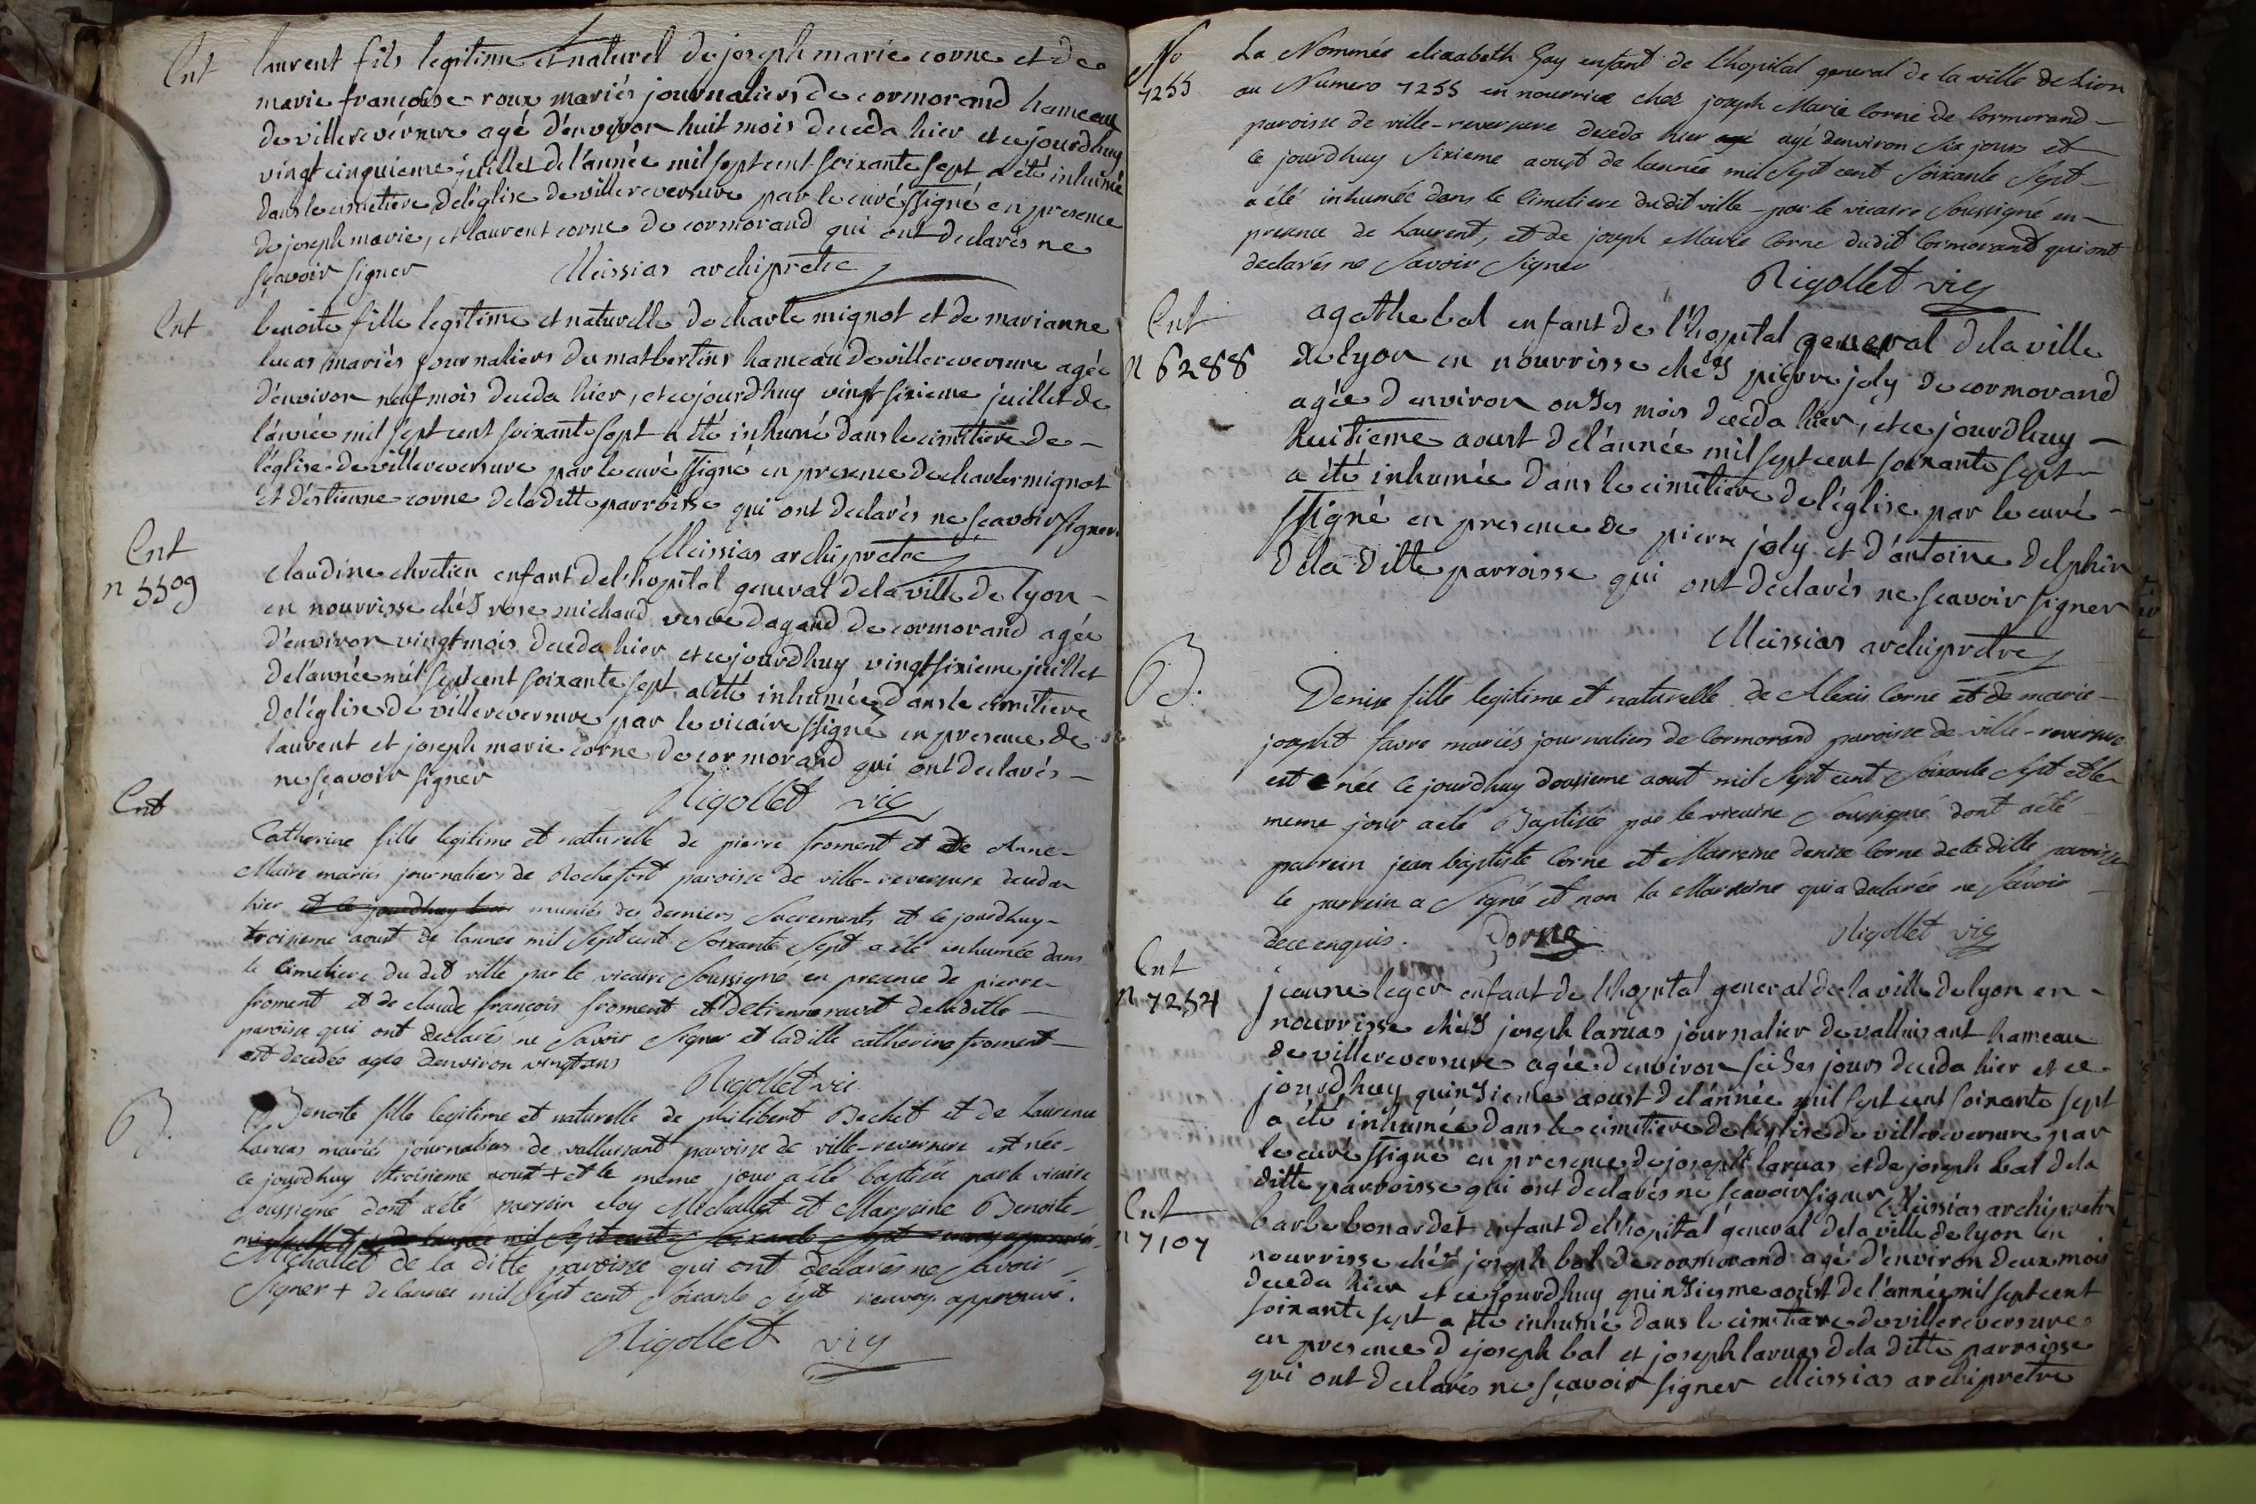 Ent
laurent fils legitime et naturel de joseph marie corne et de
marie francoise roux mariés journaliers de cormorand hameau
de villereversure agé d'environ huit mois deceda hier et cejourdhuy
vingt cinquieme juillet de l'année mil sept cent soixante sept a été inhumé
dans le cimetiere de l'église de villereversure par le curé ssigné en presence
de joseph marie, et laurent corne de cormorand qui ont declarés ne
sçavoir signer Messias archipretre
Ent
benoite fille legitime et naturelle de charle mignot et de marianne
lucas mariés journaliers du matbertins hameau de villereversure agée
d'environ neuf mois deceda hier, et cejourdhuy vingt sixieme juillet de
l'année mil sept cent soixante sept a été inhumé dans le cimetiere de
l'église de villereversure par le curé ssigné en presence de charles mignot
et d'estienne corne de la ditte parroisse qui ont declarés ne sçavoir signer
Messias archipretre
Ent
n 5509
claudine chretien enfant de l'hopital general de la ville de lyon
en nourrisse chés rose michaud veuve dagand de cormorand agée
d'environ vingt mois deceda hier et cejourdhuy vingt sixieme juillet
de l'année mil sept cent soixante sept a été inhumée dans le cimetiere
de l'église de villereversure par le vicaire ssigné en presence de
laurent et joseph marie corne de cormorand qui ont declarés
ne sçavoir signer Rigollet vic
Ent
Catherine fille legitime et naturelle de pierre froment et de Anne
Maire mariés journaliers de Rochefort paroisse de ville-reversure deceda
hier et ce jourdhuy muniés des derniers Sacrements et ce jourdhuy
troisieme aoust de lannée mil Sept cent Soixante Sept a été inhumée dans
le Cimetiere du dit ville par le vicaire Soussigné en presence de pierre
froment et de claude françois froment et de la ditte
paroisse qui ont declarés ne Savoir Signer et laditte catherine froment
est decedée agée denviron vingt ans
Rigollet vic
B.
Benoite fille legitime et naturelle de philibert Bechet et de Laurence
Laruas mariés journaliers de vallussant paroisse de ville-reversure est née
ce jourdhuy troisieme aout + et le meme jour a été baptisée par le vicaire
Soussigné dont a été parrein eloy Michallet et Marreine Benoite
de lannée mil Sept cent Soixante Sept
Michallet de la ditte paroisse qui ont declarés ne Savoir
Signer + de lannée mil Sept cent Soixante Sept renvoy approuvé.
Rigollet vic
No
7255
La Nommée elizabeth Gay enfant de l'hopital general de la ville de Lion
au Numero 7255 en nourrice chéz joseph Marie Corne de Cormorand
paroisse de ville-reversure deceda hier agé agé denviron Six jours et
ce jourdhuy Sixieme aoust de lannée mil Sept cent Soixante Sept
a été inhumée dans le Cimetiere dudit ville par le vicaire Soussigné en
presence de Laurent, et de joseph Marie Corne dudit Cormorand qui ont
declarés ne Savoir Signer
Rigollet vic
Ent
n 6288
agathe bal enfant de l'hopital general de la ville
de lyon en nourrisse chés pierre joly de cormorand
agée d'environ onses mois deceda hier, et ce jourdhuy
huitieme aoust de l'année mil sept cent soixante sept
a été inhumée dans le cimetiere de l'église par le curé
ssigné en presence de pierre joly et d'antoine delphin
de la ditte parroisse qui ont declarés ne sçavoir signer
Messias archipretre
B.
Denise fille legitime et naturelle de Alexis Corne et de marie
josepht favre mariés journaliers de Cormorand paroisse de ville-reversure
est née ce jourdhuy dousieme aout mil Sept cent Soixante Sept et le
meme jour a été Baptisée par le vicaire Soussigné dont a été
parrein jean baptiste Corne et Marreine denise Corne de la ditte paroisse
le parrein a Signé et non la Marreine qui a declarée ne Savoir
de ce enquis. Corne Rigollet vic
Ent
n 7254
jeanne leger enfant de l'hopital general de la ville de lyon en
nourrisse chés joseph laruas journalier de valluisant hameau
de villereversure agée d'environ seises jours deceda hier et ce
jourdhuy quinsieme aoust de l'année mil sept cent soixante sept
a été inhumée dans le cimetiere de l'église de villereversure par
le curé ssigné en presence de joseph laruas et de joseph bal de la
ditte parroisse qui ont declarés ne sçavoir signer Messias archipretre
Ent
n 7107
barbe bonardet enfant de l'hopital general de la ville de lyon en
nourrisse chés joseph bal de cormorand agé d'environ deux mois
deceda hier et ce jourdhuy quinsiesme aoust de l'année mil sept cent
soixante sept a été inhumé dans le cimetiere de villereversure
en presence de joseph bal et joseph laruas de la ditte parroisse
qui ont declarés ne sçavoir signer Messias archipretre